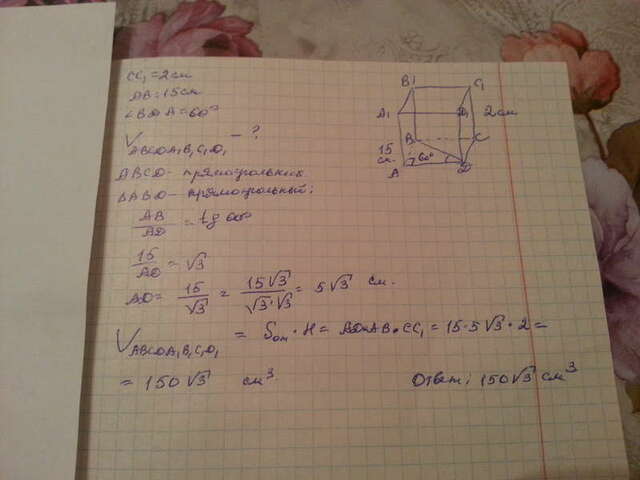 CC₁ = 2 см
AB = 15 см
∠BDA = 60°
V ABCDA₁B₁C₁D₁ - ?
ABCD - прямоугольник
ΔABD - прямоугольный:
AB/AD = tg 60°
15/AD = √3
AD = 15/√3 = 15√3/√3·√3 = 5√3 см.
V ABCDA₁B₁C₁D₁ = Sосн · H = AD·AB·CC₁ = 15·5√3·2 =
= 150√3 см³
Ответ: 150√3 см³
B₁ C₁
A₁ D₁ 2 см
B C
15 см. 60°
A D